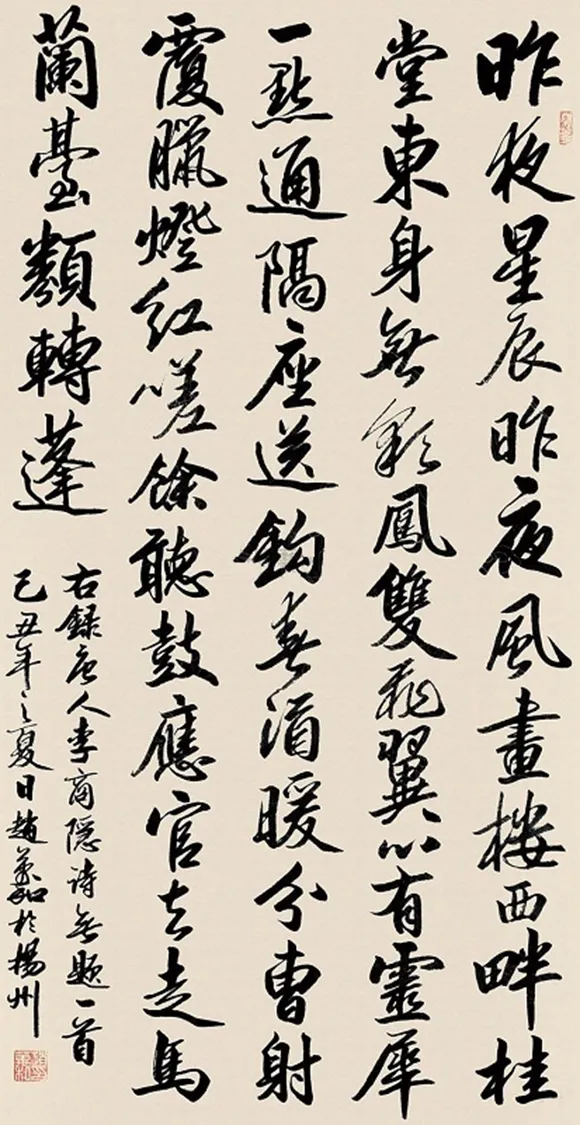 昨夜星辰昨夜風畫樓西畔桂
堂東身無彩鳳雙飛翼心有靈犀
一點通隔座送鈎春酒暖分曹射
覆臘燈紅嗟餘聽鼓應官去走馬
蘭臺類轉蓬
右錄唐人李商隱詩無題一首
己丑年之夏日趙於楊州